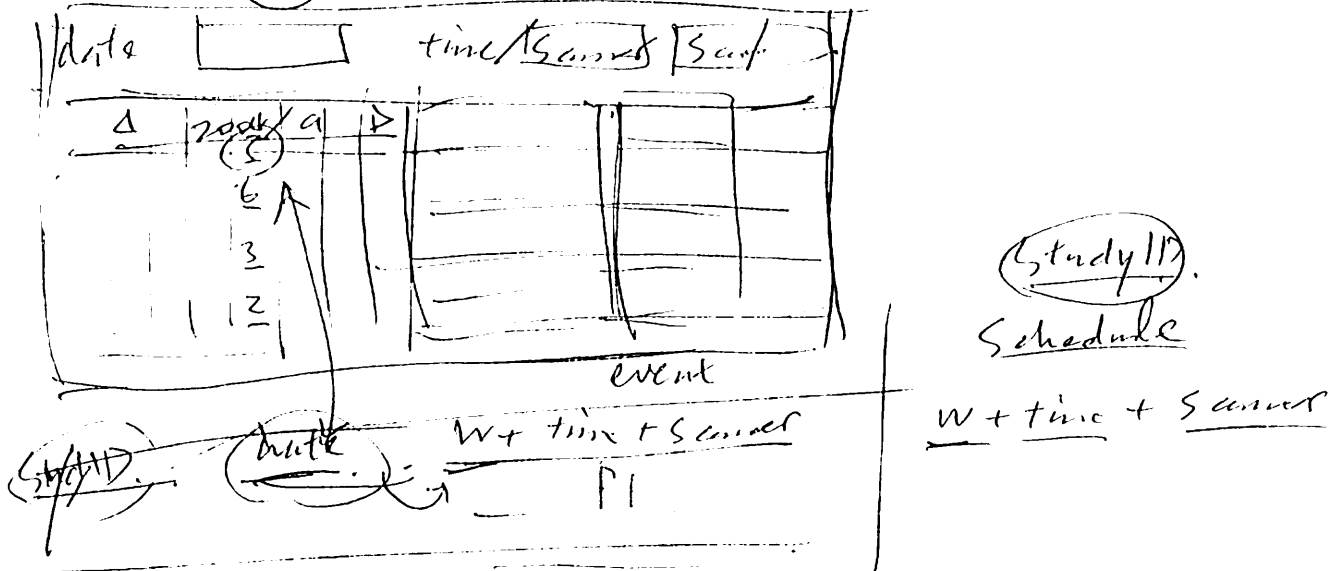 date time/Scanner Scan
Δ week a D
5
6
3
2
event
StudyID. Date. = W + time + Scanner
StudyID.
Schedule
W + time + Scanner